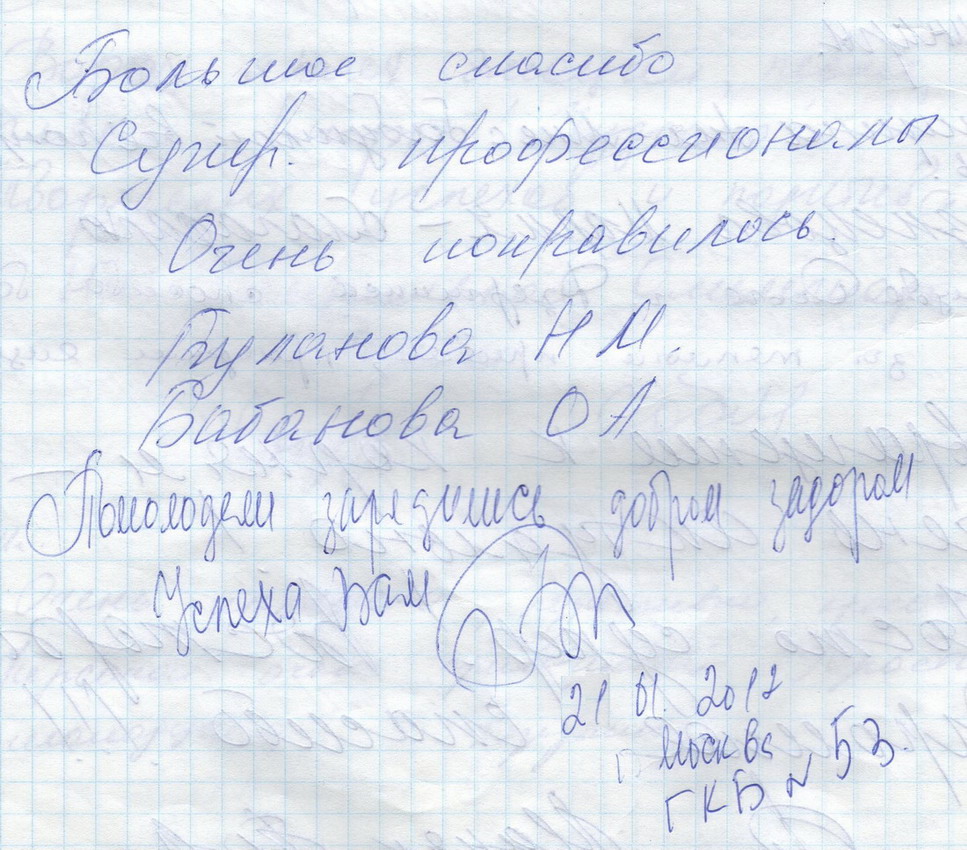 Большое спасибо
Супер. профессионалы
Очень понравилось.
Буланова Н М.
Бабанова О А
Помолодели зарядились добром задором
Успеха Вам
21 01. 2017
г. Москва
ГКБ N 53.